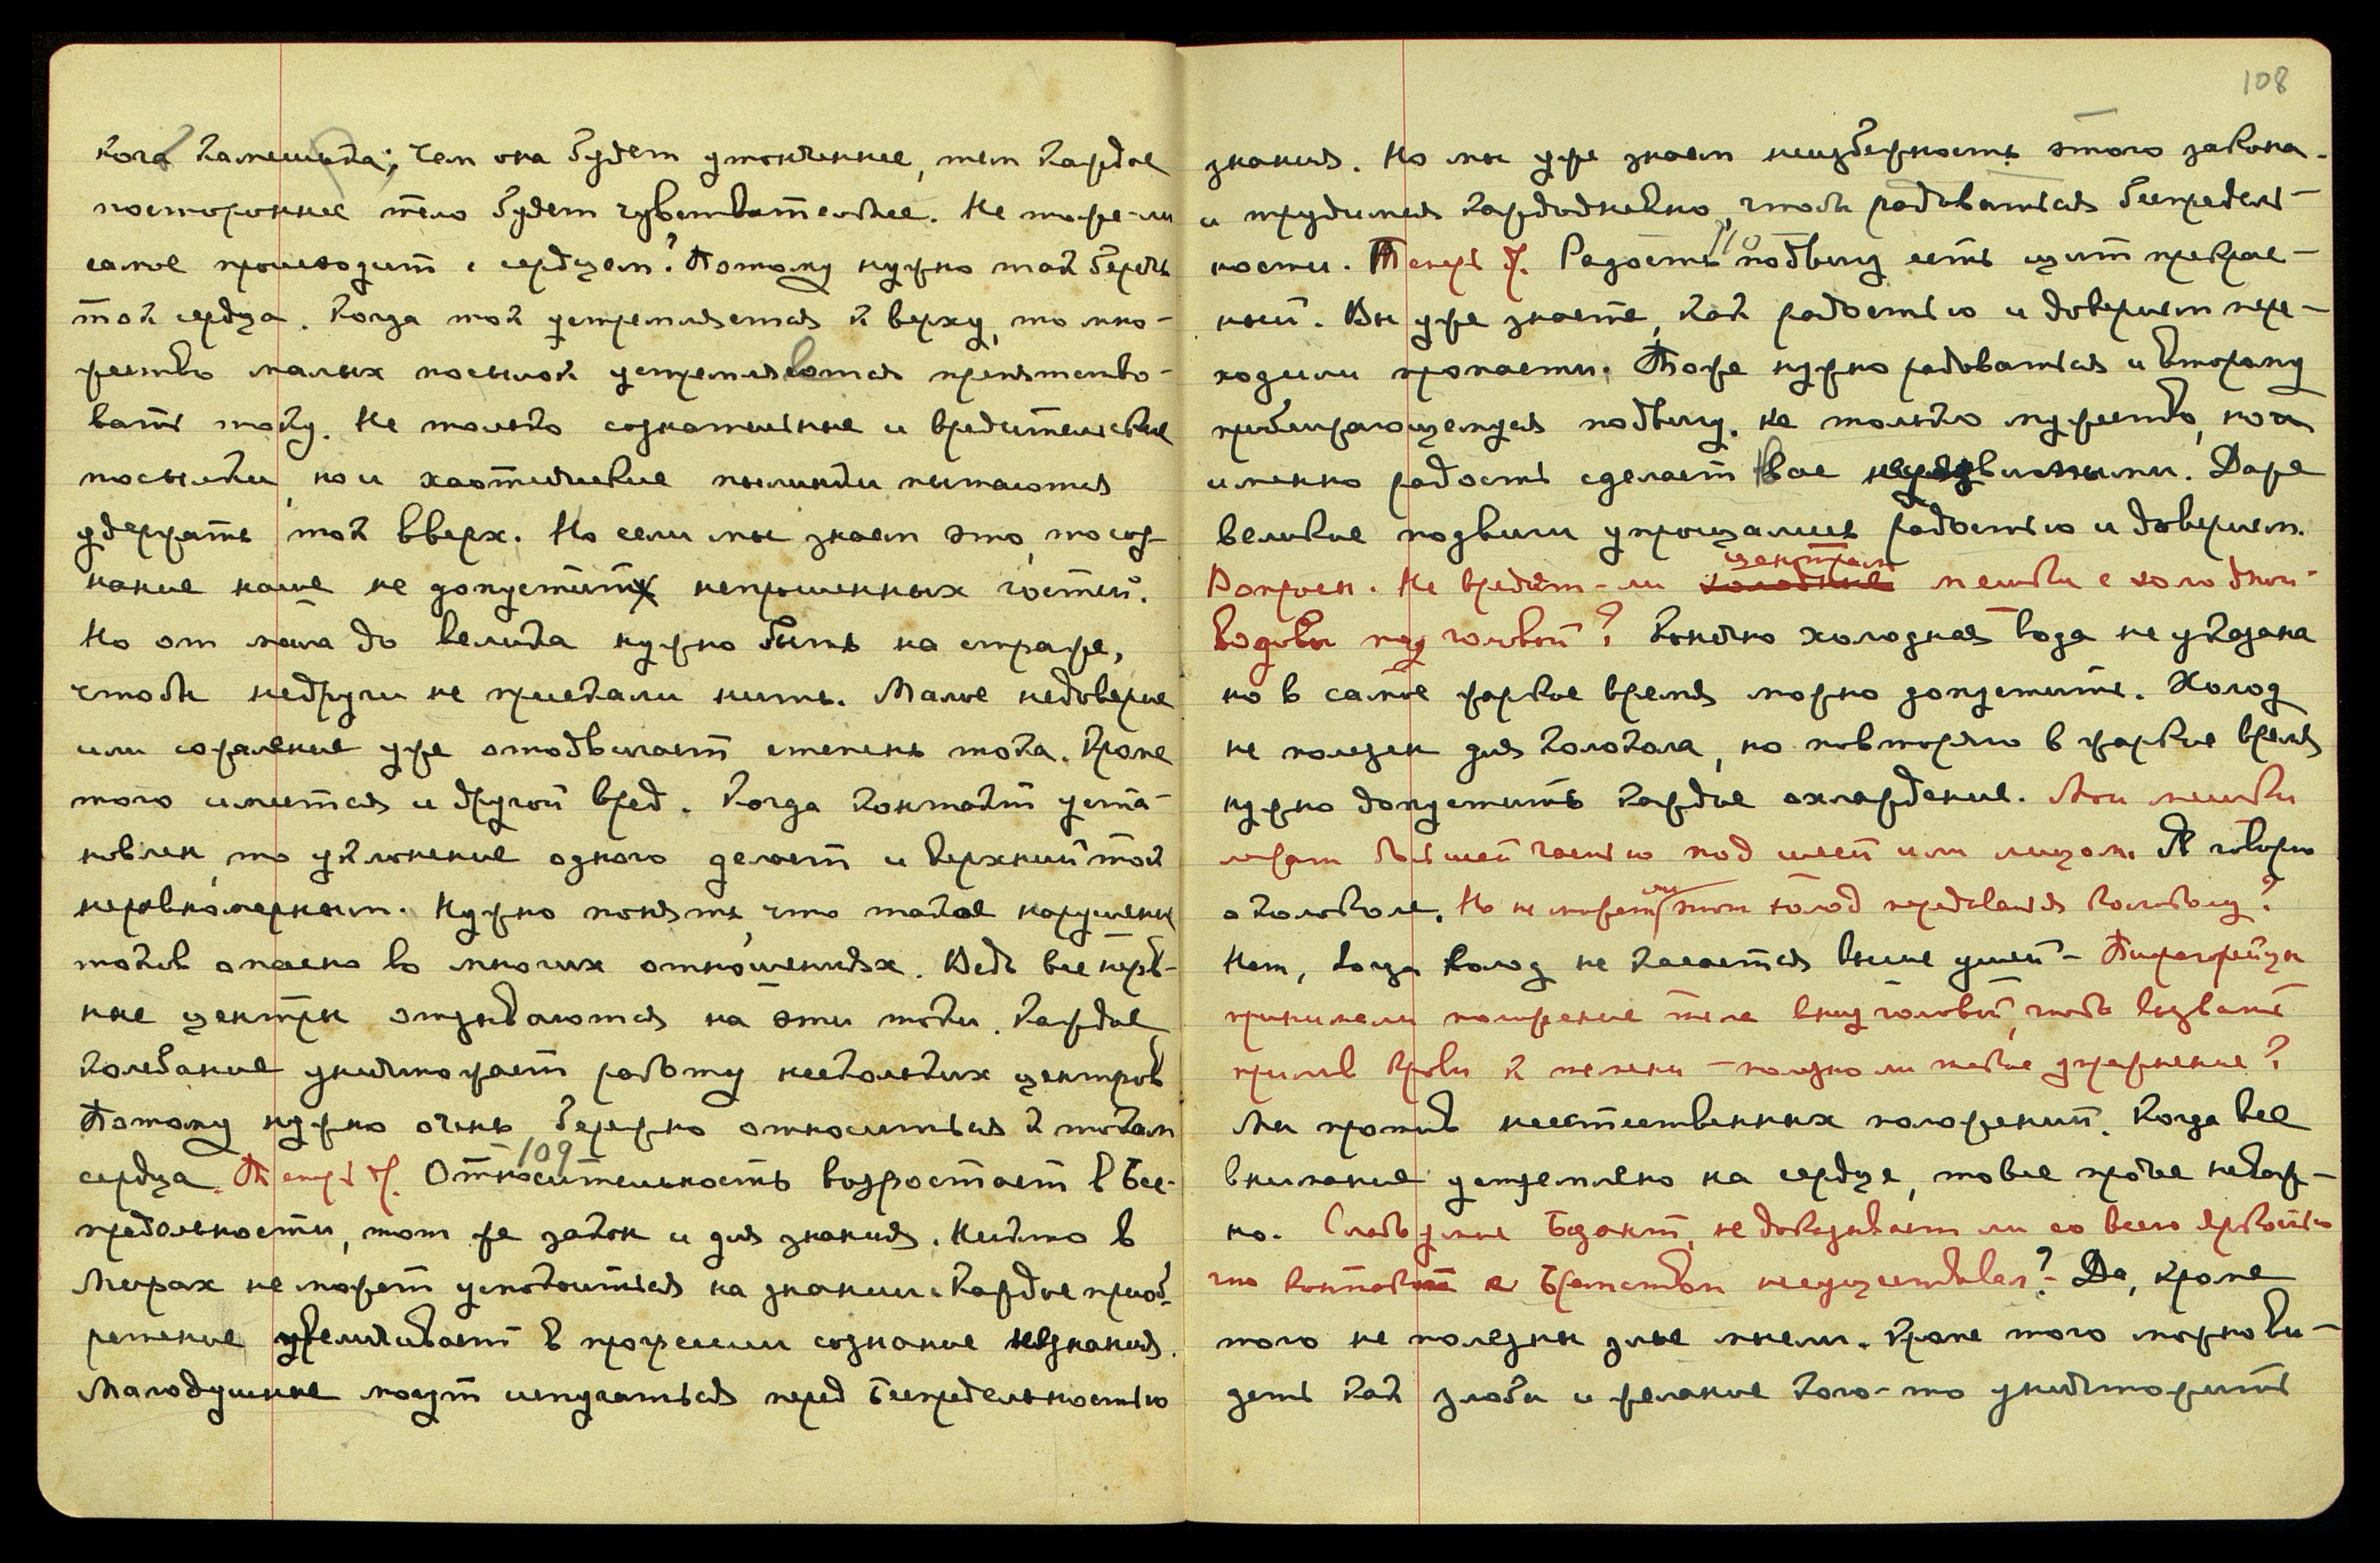 кога камешика; чем она будет утонченнее, тем каждое
постороннее тело будет чувствительнее. Не тоже-ли
самое происходит с сердцем? Потому нужно так беречь
ток сердца. Когда ток устремляется к верху, то мно-
жество малых посылок устремляются препятство-
вать току. Не только сознательные и вредительские
посылки, но и хаотические пылинки пытаются
удержать ток вверх. Но если мы знаем это, то соз-
нание наше не допустит непрошенных гостей.
Но от мала до велика нужно быть на страже,
чтобы недруги не пресекали нить. Малое недоверие
или сожаление уже отодвигает степень тока. Кроме
того имеется и другой вред. Когда контакт уста-
новлен, то уклонение одного делает и верхний ток
неравномерным. Нужно понять, что такое нарушение
токов опасно во многих отношениях. Ведь все нерв-
ные центры отзываются на эти токи. Каждое
колебание уничтожает работу нескольких центров
Потому нужно очень бережно относиться к токам
сердца. Теперь У. 109 Относительность возростает в Бес-
предельности, тот же закон и для знания. Никто в
Мирах не может успокоиться на знании. Каждое приоб-
ретение увеличивает в прогрессии сознание незнания.
Малодушные могут испугаться перед Беспредельностью
108
знания. Но мы уже знаем неизбежность этого закона
и трудимся каждодневно, чтобы радоваться Беспредель-
ности. Теперь У. 110 Радость подвигу есть щит прекрас-
ный. Вы уже знаете, как радостью и доверием пере-
ходили пропасти. Тоже нужно радоваться и второму
приближающемуся подвигу. Не только мужество, но и
именно радость сделает вас неуязвимыми. Даже
великие подвиги упрощались радостью и доверием.
Вопросы. Не вредят-ли центрам холодные мешки с холодной
водою под головой? Конечно холодная вода не указана
но в самое жаркое время можно допустить. Холод
не полезен для колокола, но повторяю в жаркое время
нужно допустить каждое охлаждение. Мои мешки
лежат большей частью под шеей или лицом. Я говорю
о колоколе. Но не может ли этот холод передаваться колоколу?
Нет, когда холод не касается выше ушей -
принимали положение тела вниз головой, чтобы вызвать
прилив крови к темени - полезно ли такое упражнение?
Мы против неестественных положений. Когда все
внимание устремлено на сердце, то все прочее неваж-
но. Слабоумие Безант, не доказывает ли со всею яркостью
что контакт с Братством не существовал? - Да, кроме
того не полезны злые мысли. Кроме того можно ви-
деть как злоба и желание кого-то уничтожить